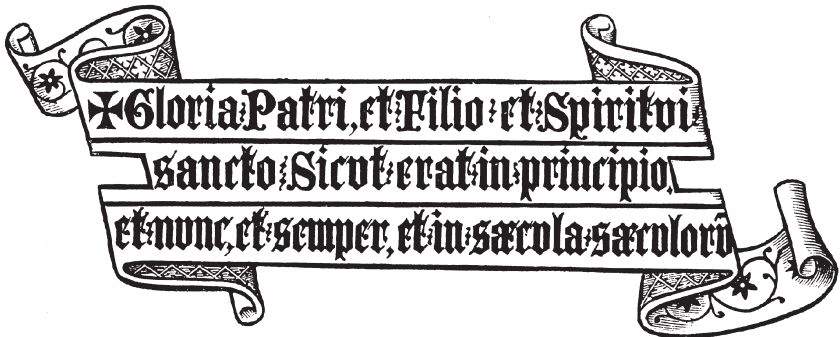 ✠Gloria⁝Patri,et⁝Filio⁝et⁝Spiritvi
sancto⁝Sicvt⁝erat⁝in⁝principio,
et⁝nvnc,et⁝semper,et⁝in⁝sæcvla⁝sæcvlorū